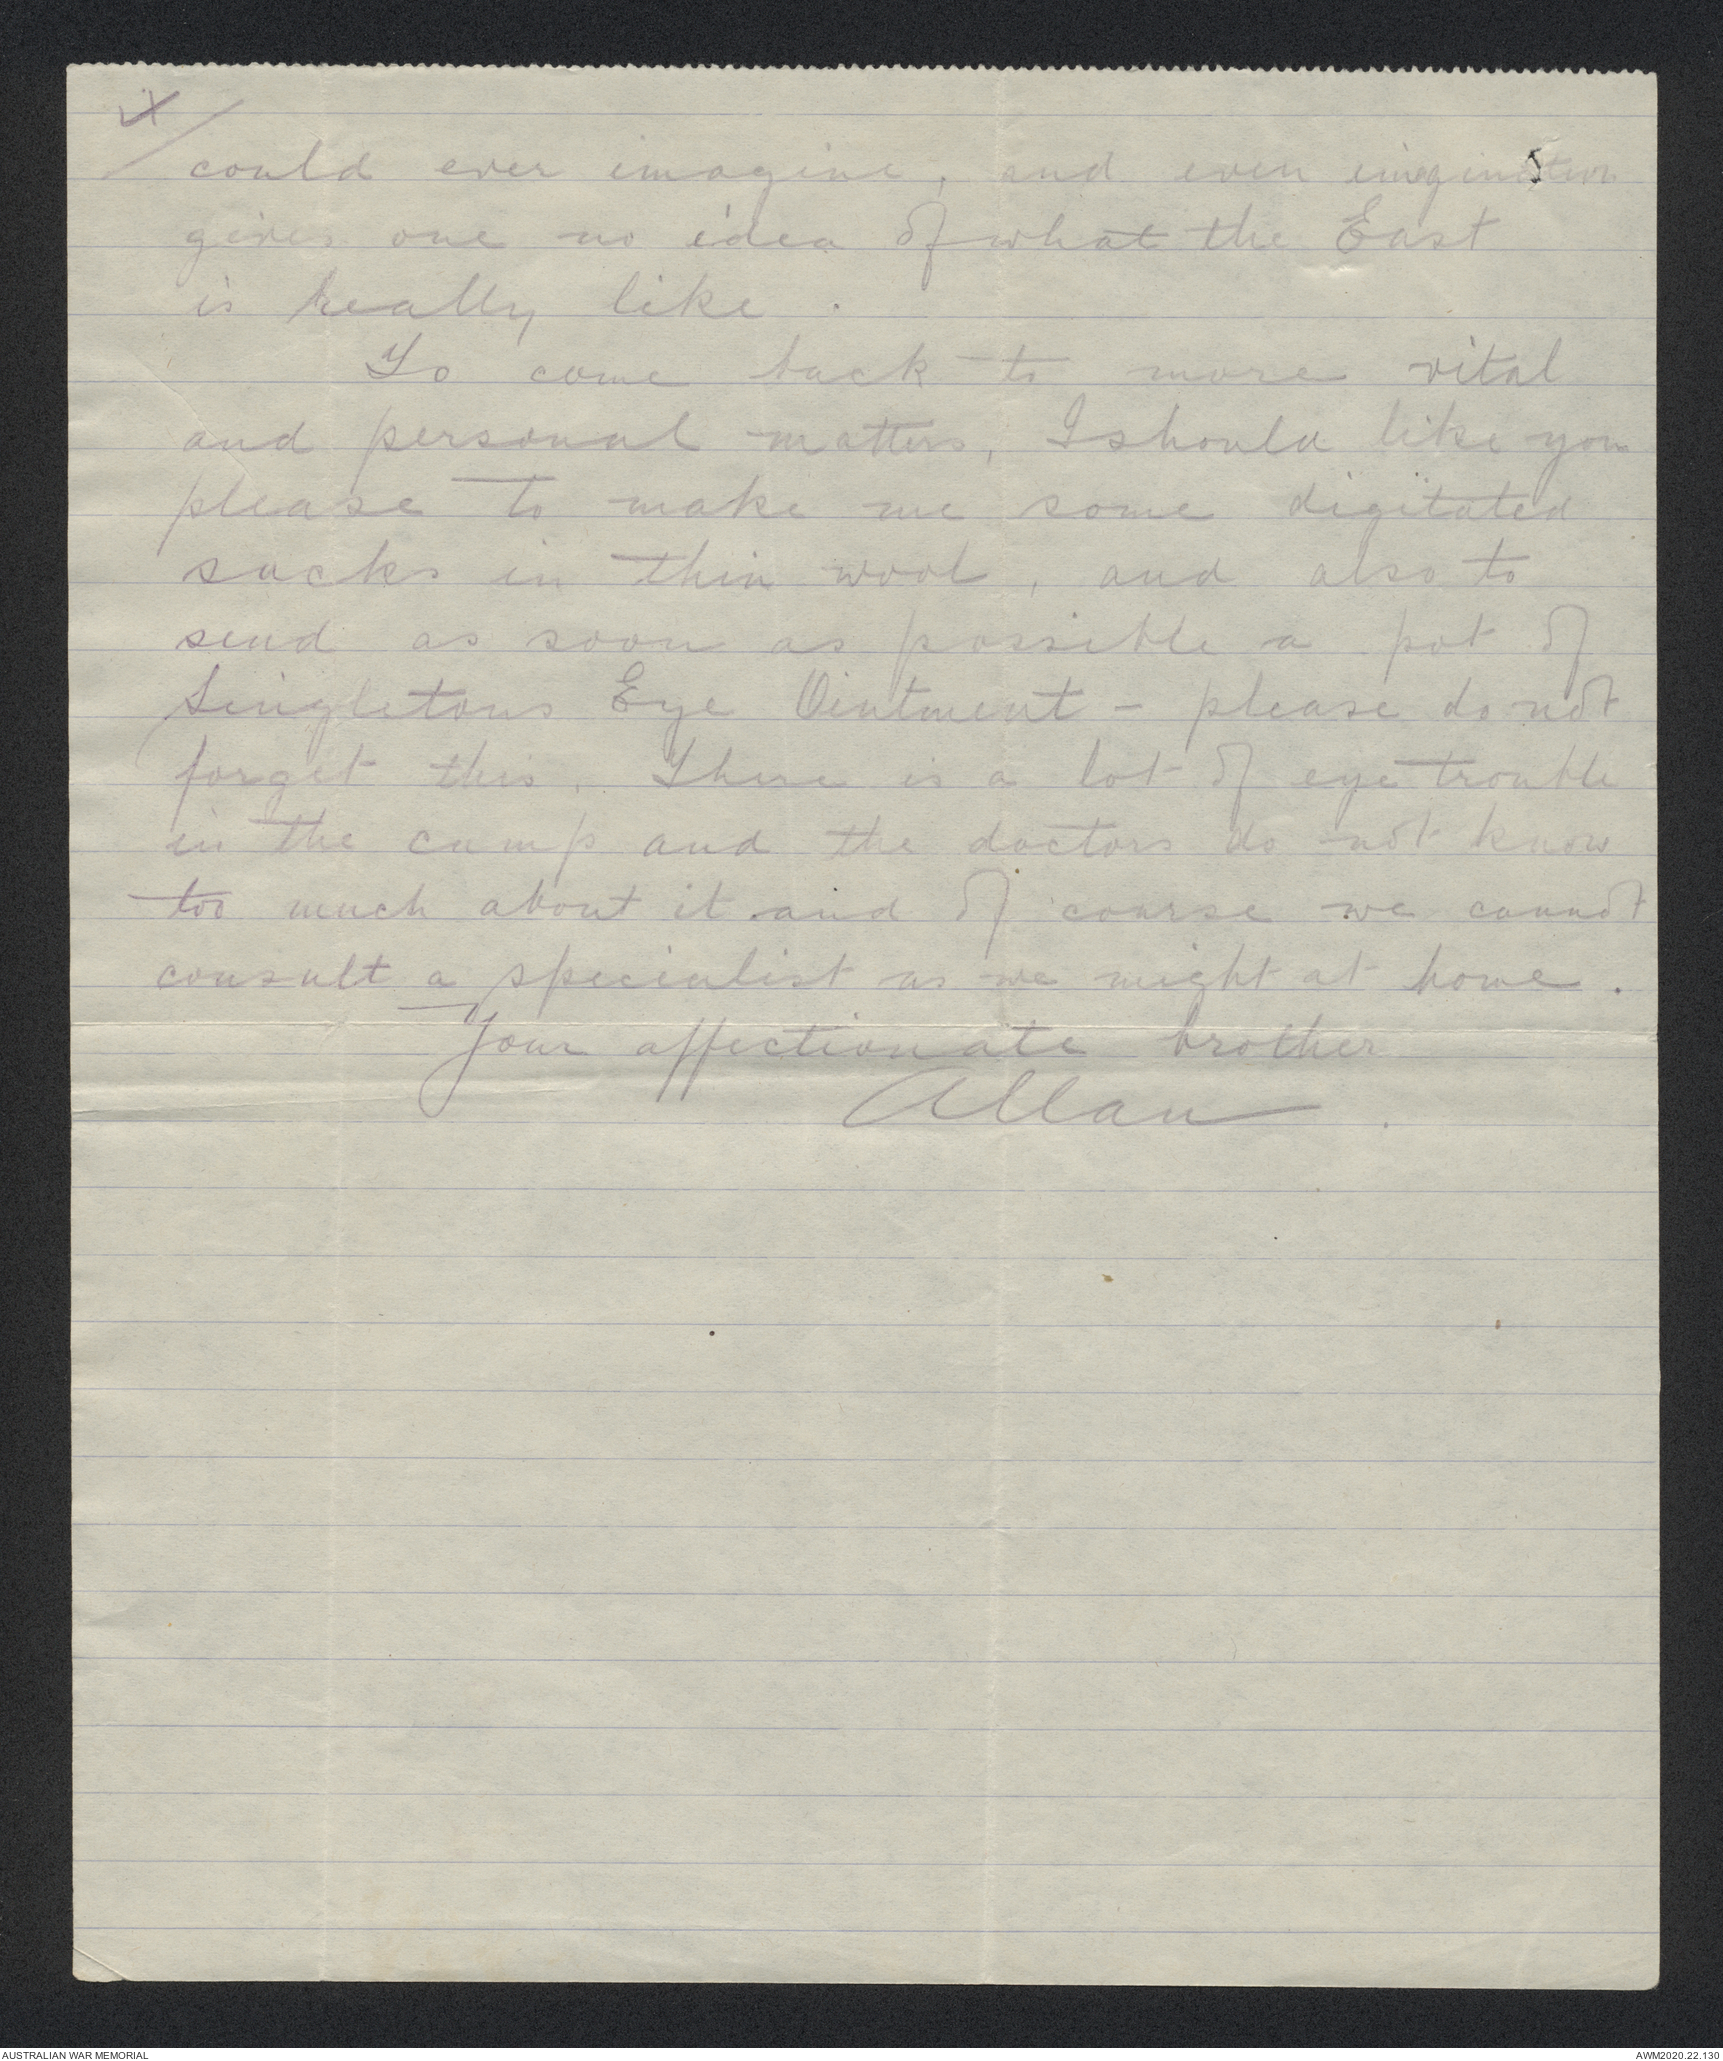 could ever imagine, and even imagination
gives one no idea of what the East
is really like.
To come back to more vital
and personal matters, I should like you
please to make me some digitated
socks in thin wool, and also to
send as soon as possible a pot of
Singletons Eye Ointment - please do not
forget this. There is a lot of eye trouble
in the camp and the doctors do not know
too much about it and of course we cannot
consult a specialist as we might at home.
Your affectionate brother
Allan.
AUSTRALIAN WAR MEMORIAL
AWM2020.22.130